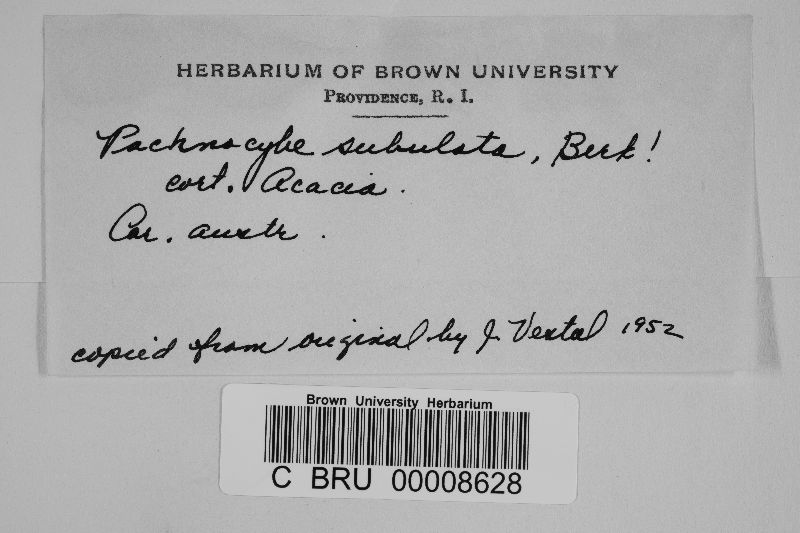 HERBARIUM OF BROWN UNIVERSITY
PROVIDENCE, R. I.
Pachnocybe subulata, Berk!
cort. Acacia.
Car. austr.
copied from original by J. Vestal 1952
Brown University Herbarium
C BRU 00008628